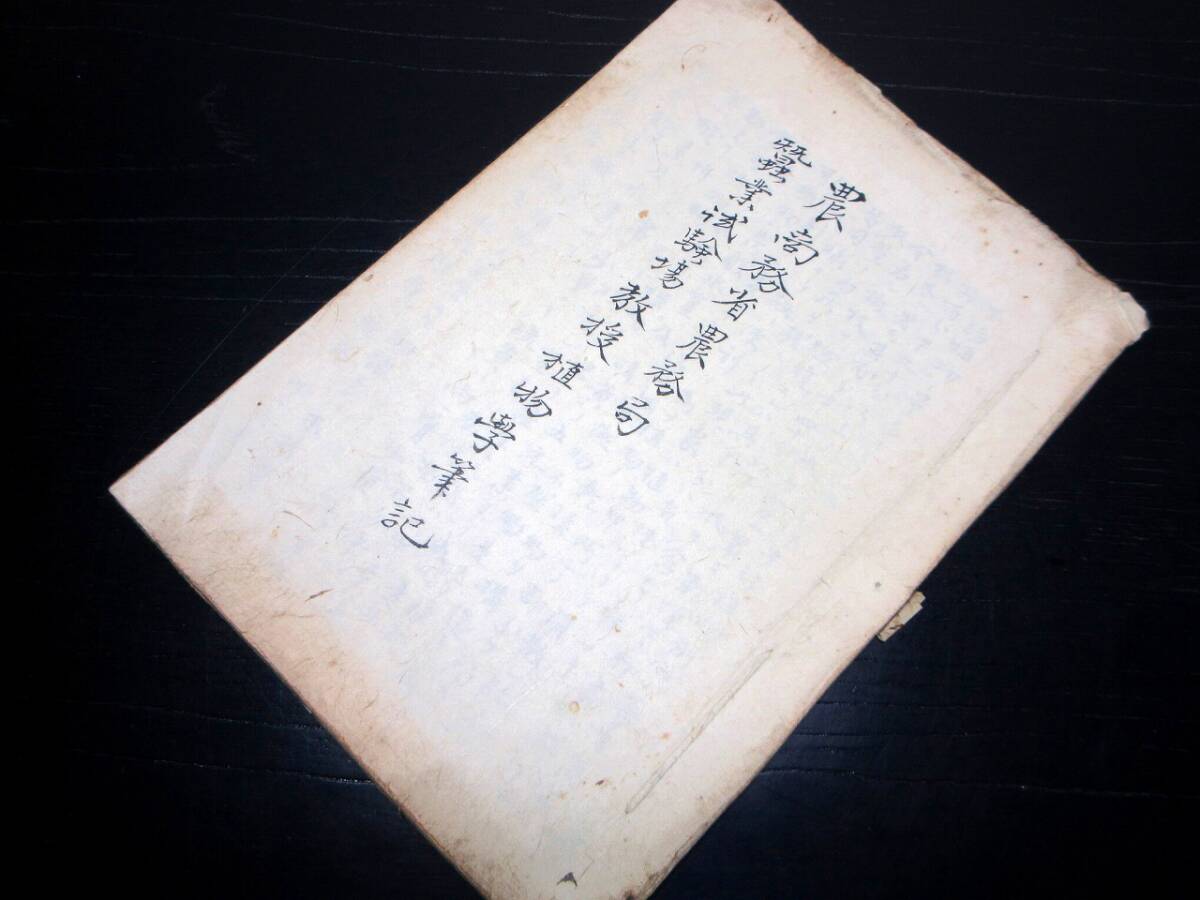 農商務省農務局
蠶業試験場教授植物學筆記